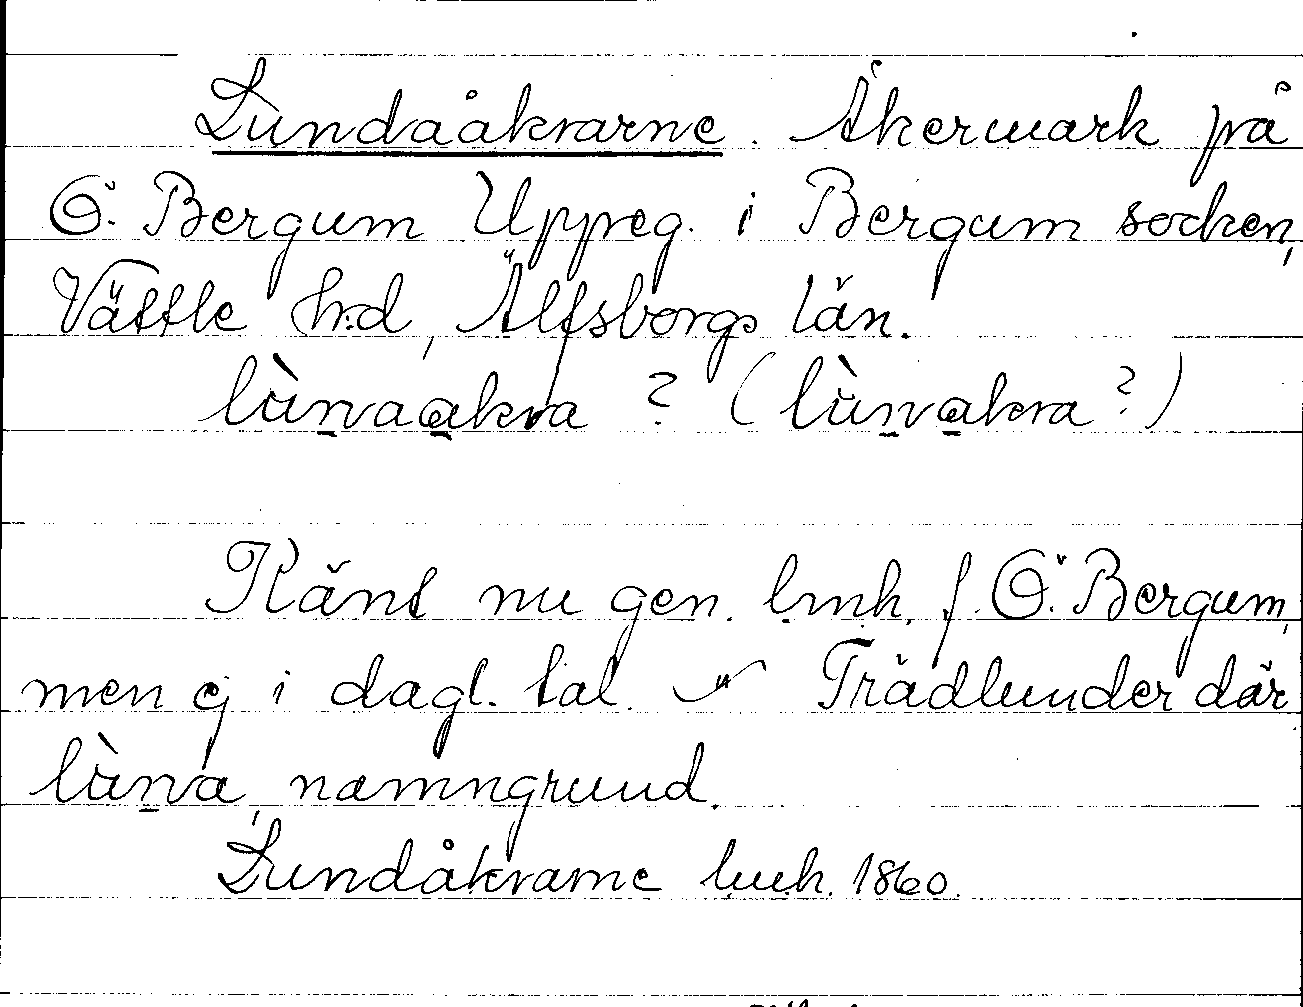 Lundaåkrarne. Åkermark på
Ö. Bergum Uppeg. i Bergum socken,
Vättle h:d, Älfsborgs län.
lùnaakra ? (lùnakra ?)
Känt nu gen. lmh. f. Ö. Bergum,
men ej i dagl. tal. Trädlunder där
lùna, namngrund.
Lundåkrarne lmh. 1860.